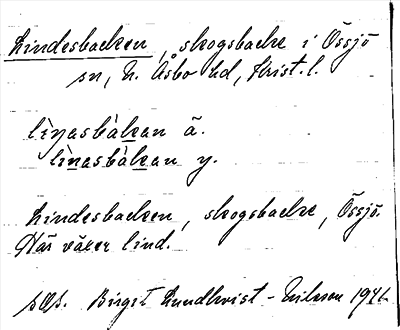 Lindesbacken, skogsbacke i Össjö
sn, N. Åsbo hd, Krist. l.
lìnasbàkan ä.
lìnasbàkan y.
Lindesbacken, skogsbacke, Össjö.
Här växer lind.
Birgit Lundkvist-Nilsson 1946